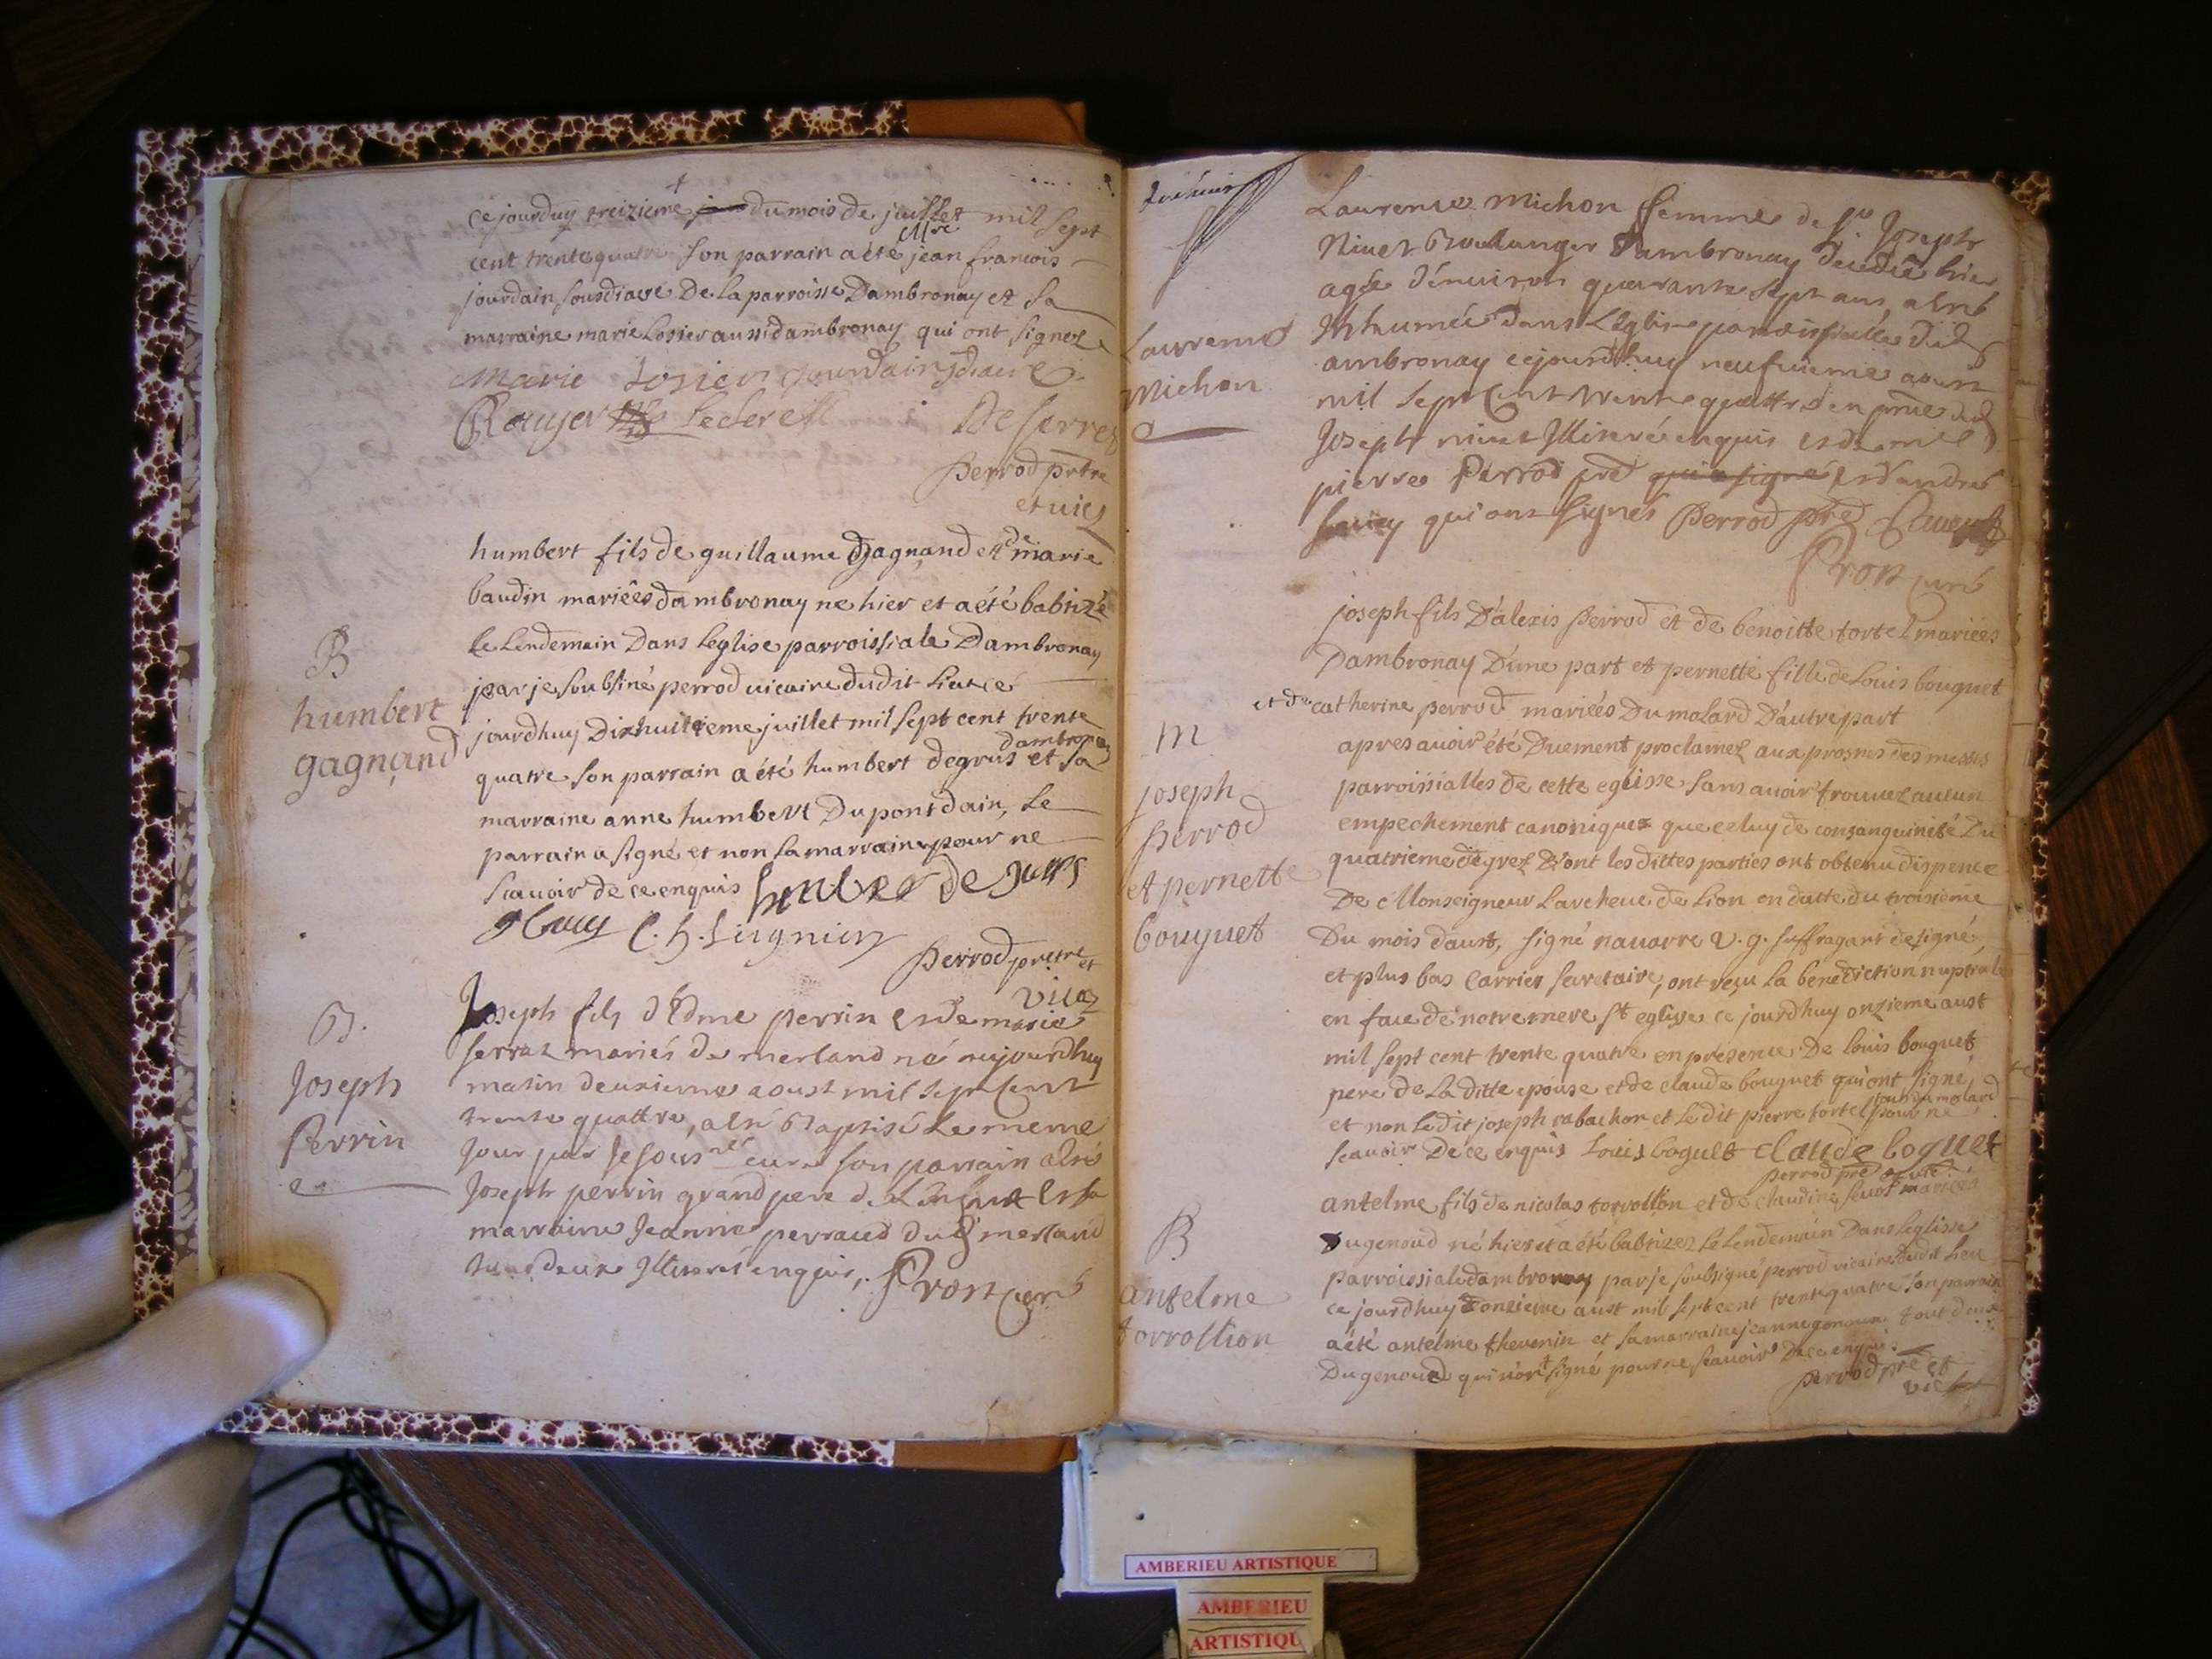 ce jourdhuy treizieme du mois de juillet mil sept
cent trente quatre son parrain a été Mre jean francois
jourdain sousdiacre De la parroisse Dambronay et sa
marraine marie Losier aussi dambronay qui ont signez
Marie Losier jourdain sdiacre
Rouyer Leclerc De serres
perrod prtre
et vic
B
humbert
gagnand
humbert fils de guillaume gagnand et de marie
baudin mariées dambronay ne hier et a été babtizé
le Lendemain Dans Leglise parroissiale Dambronay
par je soubsiné perrod vicaire dudit Lieu ce
jourdhuy Dixhuitieme juillet mil sept cent trente
quatre son parrain a été humbert degrus dambronay et sa
marraine anne humbert Du pont dain, Le
parrain a signé et non la marraine pour ne
scavoir de ce enquis humber de gurs
perrod pretre et
vic
B.
Joseph
Perrin
Joseph fils d'Edme perrin et de marie
ferraz mariés de merland né aujourdhuy
matin deuxieme aoust mil sept cent
trente quattre, a été Baptisé le meme
Jour par Je sousné curé son parrain a été
Joseph perrin grand pere de L'enfant et sa
marraine Jeanne perraud dud merland
tous deux Illiterés enquis, Pron curé
Laurence
Michon
Laurence Michon femme de Sr Joseph
Nivet Boulanger Dambronay decedée hier
agée d'environ quarante sept ans, a été
Inhumée dans L'Eglise parroissialle dud
ambronay cejourdhuy neufvieme aoust
mil sept cent trente quattre en pnce dud
Joseph nivet Illiteré enquis et de mre
pierre Perrod pre qui a signé et d'andré
qui ont signés Perrod pre
Pron curé
m
joseph
perrod
et pernette
bouquet
joseph fils D'alexis perrod et de benoitte tortel mariées
Dambronay D'une part et pernette fille de Louis bouquet
et de catherine perrod mariées Du molard D'autre part
apres avoir été Duement proclamez aux prosnes des messes
parroissialles de cette eglisse sans avoir trouvez aucun
empechement canonique que celuy de consanguinité Du
quatrieme degrez D'ont les dittes parties ont obtenu dispence
De Monseigneur L'archeve de Lion en datte du troisieme
Du mois d'aust, signé navarre v. g. suffragant designé,
et plus bas Carrier secretaire, ont reçu la benediction nuptiale
en face de notre mere ste eglisse ce jourdhuy onzieme aust
mil sept cent trente quatre en presence De louis bouquet
pere de La ditte epouse et de claude bouquet qui ont signé,
et non Ledit joseph cabachon et Ledit pierre tortel pour ne
scavoir De ce enquis Louis boguet claude boguet
perrod pre
B
antelme
torrollion
antelme fils de nicolas torrollion et de claudine mariées
Dugenoud né hier et a été babtizez le Lendemain Dans Leglisse
parroissiale dambronay par je soubsigné perrod vicaire dudit Lieu
ce jourdhuy onzieme aust mil sept cent trente quatre son parrain
a été antelme thevenin et sa marraine jeanne tout deux
Dugenoud qui n'ont signé pour ne scavoir De ce enquis
perrod pre et
vic
AMBERIEU ARTISTIQUE
AMBERIEU
ARTISTIQU